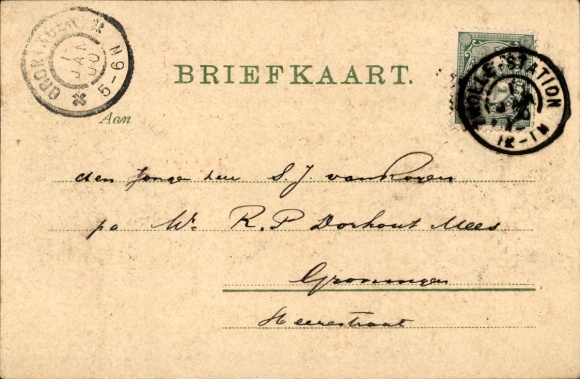 GRONINGEN
1 JAN 00
5-6N
BRIEFKAART.
ZWOLLE-STATION
12-1M
Aan
den Jonge heer S. J. van Royen
pa Wᵉ R. P. Dorhout Mees
Groningen
Heerestraat